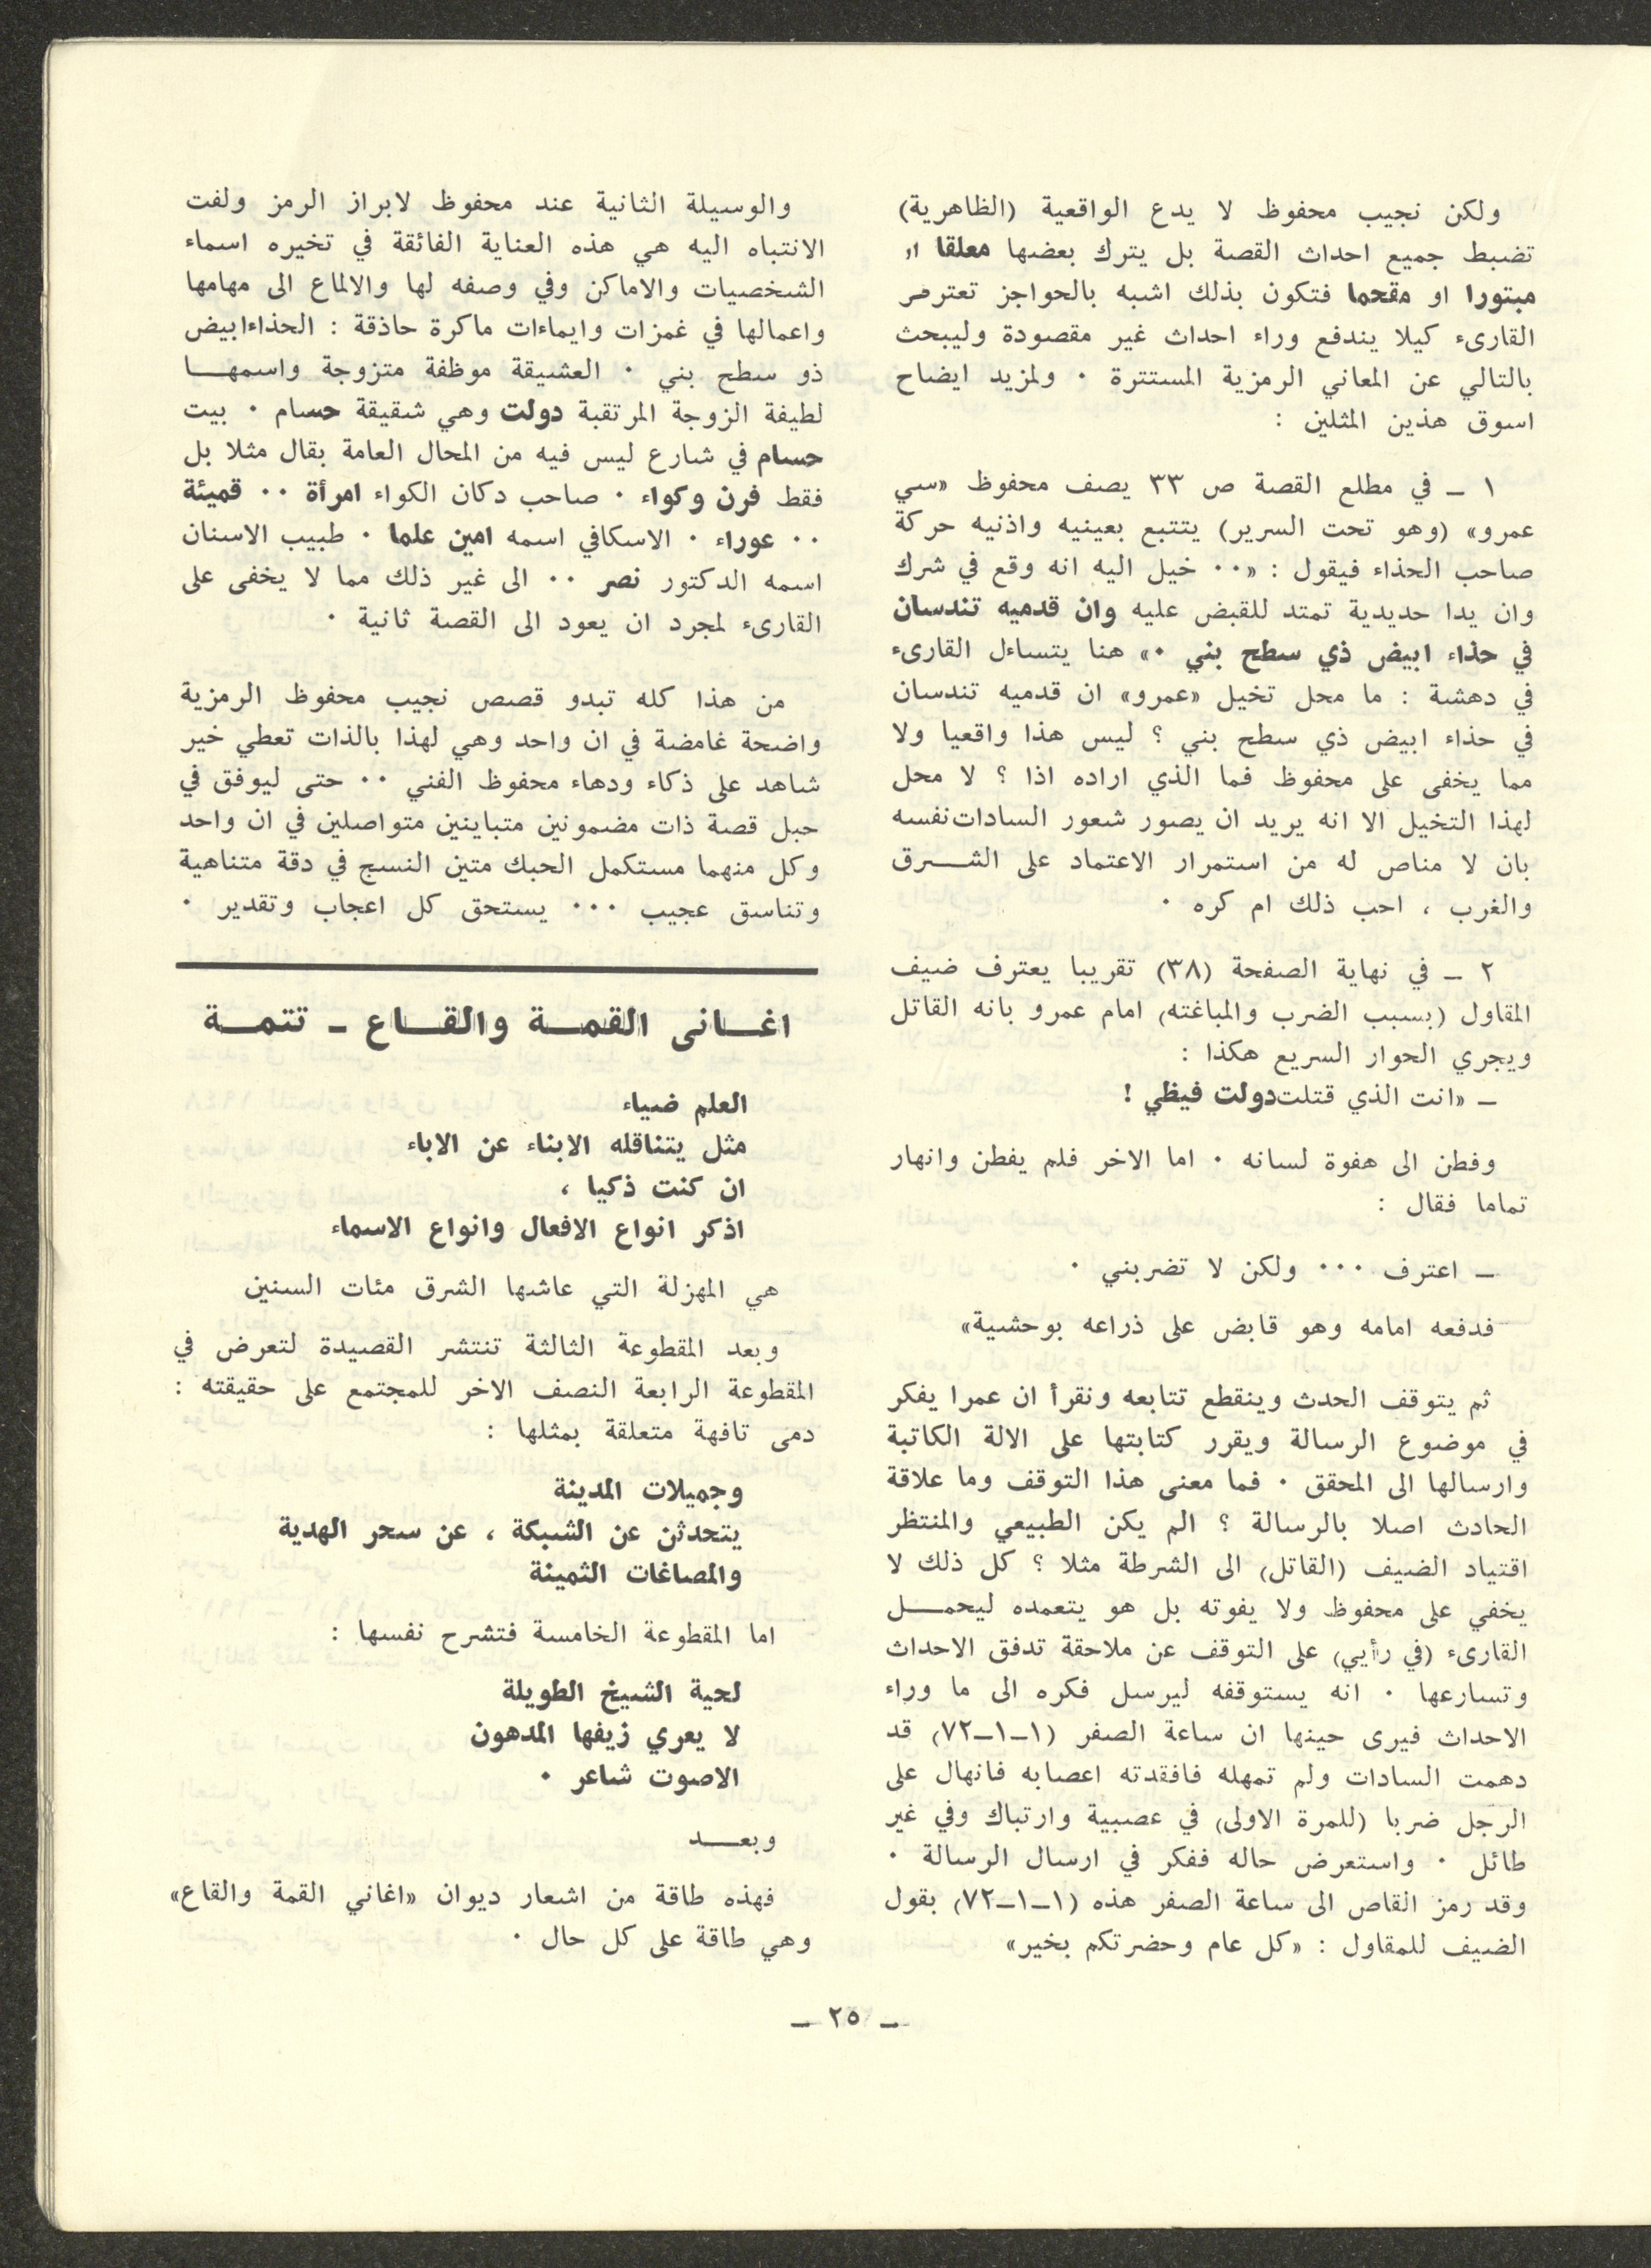 ولكن نجيب محفوظ لا يدع الواقعية (الظاهرية)
تضبط جميع احداث القصة بل يترك بعضها معلقا او
مبتورا او مقحما فتكون بذلك اشبه بالحواجز تعترض
القارىء كيلا يندفع وراء احداث غير مقصودة وليبحث
بالتالي عن المعاني الرمزية المستترة ٠ ولمزيد ايضاح
اسوق هذين المثلين :
١ ـ في مطلع القصة ص ٣٣ يصف محفوظ «سي
عمرو» (وهو تحت السرير) يتتبع بعينيه واذنيه حركة
صاحب الحذاء فيقول : «٠٠ خيل اليه انه وقع في شرك
وان يدا حديدية تمتد للقبض عليه وان قدميه تندسان
في حذاء ابيض ذي سطح بني ٠» هنا يتساءل القارىء
في دهشة : ما محل تخيل «عمرو» ان قدميه تندسان
في حذاء ابيض ذي سطح بني ؟ ليس هذا واقعيا ولا
مما يخفى على محفوظ فما الذي اراده اذا ؟ لا محل
لهذا التخيل الا انه يريد ان يصور شعور السادات نفسه
بان لا مناص له من استمرار الاعتماد على الشـــرق
والغرب ، احب ذلك ام كره ٠
٢ ـ في نهاية الصفحة (٣٨) تقريبا يعترف ضيف
المقاول (بسبب الضرب والمباغته) امام عمرو بانه القاتل
ويجري الحوار السريع هكذا :
ـ «انت الذي قتلت دولت فيظي !
وفطن الى هفوة لسانه ٠ اما الاخر فلم يفطن وانهار
تماما فقال :
ـ اعترف ٠٠٠ ولكن لا تضربني ٠
فدفعه امامه وهو قابض على ذراعه بوحشية»
ثم يتوقف الحدث وينقطع تتابعه ونقرأ ان عمرا يفكر
في موضوع الرسالة ويقرر كتابتها على الالة الكاتبة
وارسالها الى المحقق ٠ فما معنى هذا التوقف وما علاقة
الحادث اصلا بالرسالة ؟ الم يكن الطبيعي والمنتظر
اقتياد الضيف (القاتل) الى الشرطة مثلا ؟ كل ذلك لا
يخفي على محفوظ ولا يفوته بل هو يتعمده ليحمـــل
القارىء (في رأيي) على التوقف عن ملاحقة تدفق الاحداث
وتسارعها ٠ انه يستوقفه ليرسل فكره الى ما وراء
الاحداث فيرى حينها ان ساعة الصفر (١ـ١ـ٧٢) قد
دهمت السادات ولم تمهله فافقدته اعصابه فانهال على
الرجل ضربا (للمرة الاولى) في عصبية وارتباك وفي غير
طائل ٠ واستعرض حاله ففكر في ارسال الرسالة ٠
وقد رمز القاص الى ساعة الصفر هذه (١ـ١ـ٧٢) بقول
الضيف للمقاول : «كل عام وحضرتكم بخير»
والوسيلة الثانية عند محفوظ لابراز الرمز ولفت
الانتباه اليه هي هذه العناية الفائقة في تخيره اسماء
الشخصيات والاماكن وفي وصفه لها والالماع الى مهامها
واعمالها في غمزات وايماءات ماكرة حاذقة : الحذاءابيض
ذو سطح بني ٠ العشيقة موظفة متزوجة واسمهـــا
لطيفة الزوجة المرتقبة دولت وهي شقيقة حسام ٠ بيت
حسام في شارع ليس فيه من المحال العامة بقال مثلا بل
فقط فرن وكواء ٠ صاحب دكان الكواء امرأة ٠٠ قميئة
٠٠ عوراء ٠ الاسكافي اسمه امين علما ٠ طبيب الاسنان
اسمه الدكتور نصر ٠٠ الى غير ذلك مما لا يخفى على
القارىء لمجرد ان يعود الى القصة ثانية ٠
من هذا كله تبدو قصص نجيب محفوظ الرمزية
واضحة غامضة في ان واحد وهي لهذا بالذات تعطي خير
شاهد على ذكاء ودهاء محفوظ الفني ٠٠ حتى ليوفق في
حبل قصة ذات مضمونين متباينين متواصلين في ان واحد
وكل منهما مستكمل الحبك متين النسج في دقة متناهية
وتناسق عجيب ٠٠٠ يستحق كل اعجاب وتقدير ٠
اغـــانى القمـــة والقـــاع ـ تتمـــة
العلم ضياء
مثل يتناقله الابناء عن الاباء
ان كنت ذكيا ،
اذكر انواع الافعال وانواع الاسماء
هي المهزلة التي عاشها الشرق مئات السنين
وبعد المقطوعة الثالثة تنتشر القصيدة لتعرض في
المقطوعة الرابعة النصف الاخر للمجتمع على حقيقته :
دمى تافهة متعلقة بمثلها :
وجميلات المدينة
يتحدثن عن الشبكة ، عن سحر الهدية
والمصاغات الثمينة
اما المقطوعة الخامسة فتشرح نفسها :
لحية الشيخ الطويلة
لا يعري زيفها المدهون
الاصوت شاعر ٠
وبعـــد
فهذه طاقة من اشعار ديوان «اغاني القمة والقاع»
وهي طاقة على كل حال ٠
ـ ٢٥ ـ